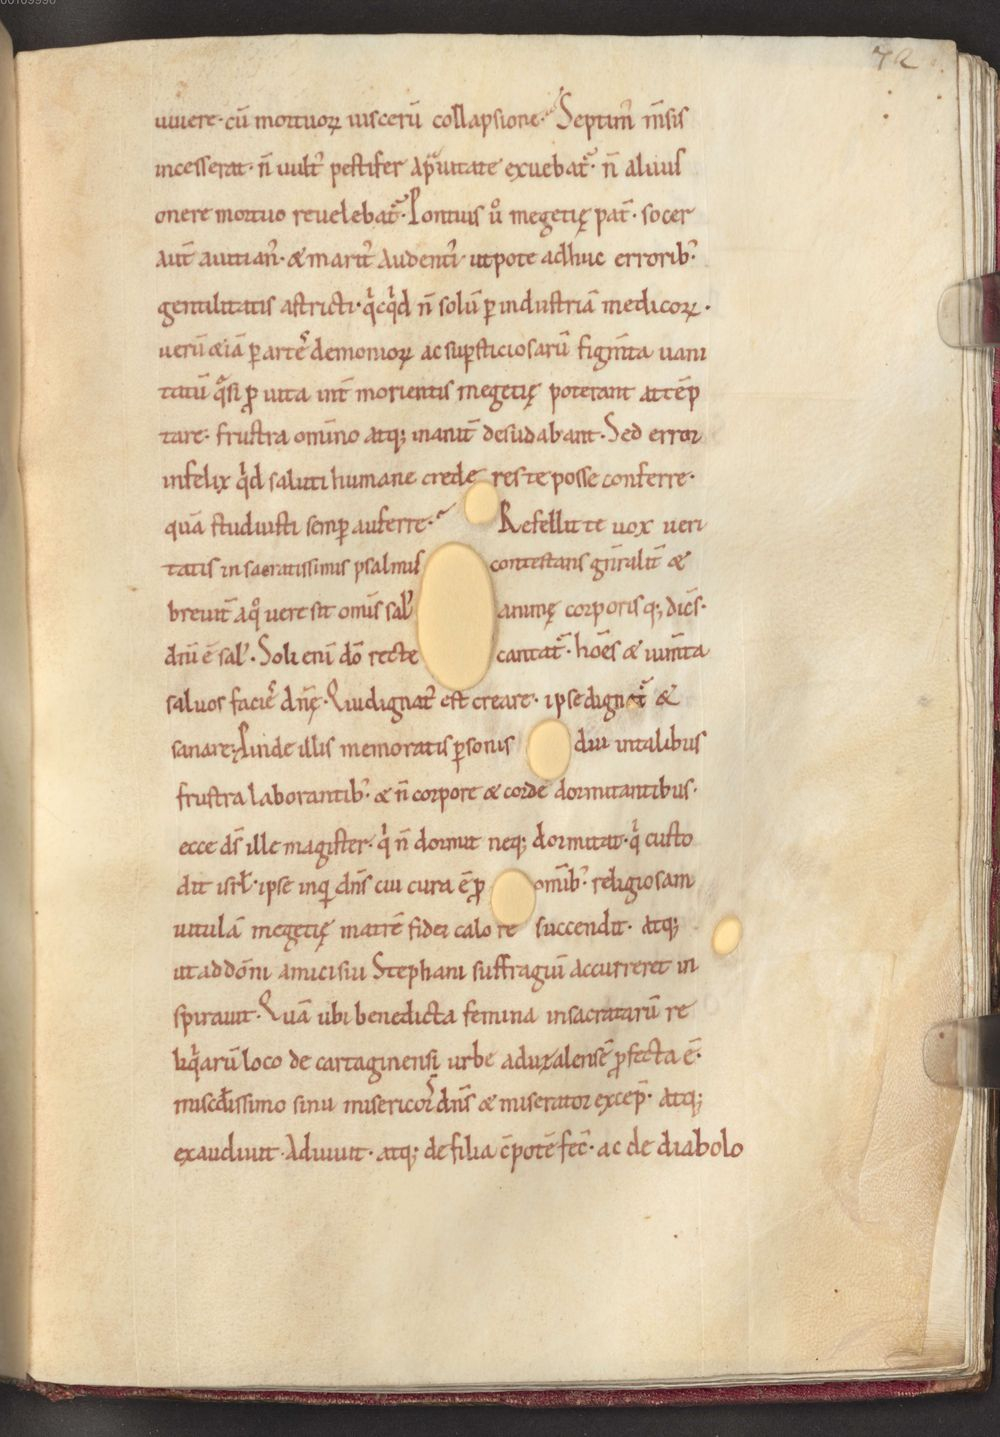 72
uiuere· cū mortuoꝝ uiscerū collapsione· Septim᷒ m̄sis
incesserat· n̄ uult᷒ pestifer a p̄uitate exuebat᷑· n̄ aluus
onere mortuo reuelebat᷑· Pontius u͛o megetię pat̄· socer
aut̄ auitian᷒· & marit᷒ audenti᷒· utpote adhuc errorib᷒·
gentilitatis astricti· qͥcqͥd n̄ solū ꝑ industriā medicoꝝ·
uerū &iā ꝑ artē demonioꝝ ac suꝑsticiosarū figm̄ta uani
tatū qͣsi ꝓ uita int̄ morientis megetię poterant attēp
tare· frustra omīno atq; inanit̄ desudabant· Sed error
infelix qͥd saluti humane crede res te posse conferre·
quā studuisti semꝑ auferre· Refellit te uox ueri
tatis in sacratissimis psalmis contestans gn̄ralit̄ &
breuit̄ a qͦ uere sit omīs sal᷒ animę corporis q; dicēs·
dn̄i ē sal᷒· Soli enī dō recte cantat᷑· hoēs & ium̄ta
saluos faciēs dn̄ę· Qui dignat᷒ est creare· ipse dignat᷑ &
sanare; Proinde illis memoratis ꝑsonis diu in talibus
frustra laborantib᷒· & n̄ corpore & corde dormitantibus·
ecce ds̄ ille magister· qͥ n̄ dormit neq; dormitat· qͥ custo
dit isrl̄· ipse inq̄ dn̄s cui cura ē ꝓ omīb᷒· religiosam
uitulā megetię matrē fidei calo re succendit· atq;
ut ad dōni amici sui Stephani suffragiū accurreret in
spirauit· Quā ubi benedicta femina in sacratarū re
liqͥarū loco de cartaginensi urbe ad uzalensē ꝓfecta ē·
miscd̄issimo sinu misericor᷒ dn̄s & miserator excep̄· atq;
exaudiuit· Adiuuit· atq; de filia c̄potē fec̄· ac de diabolo